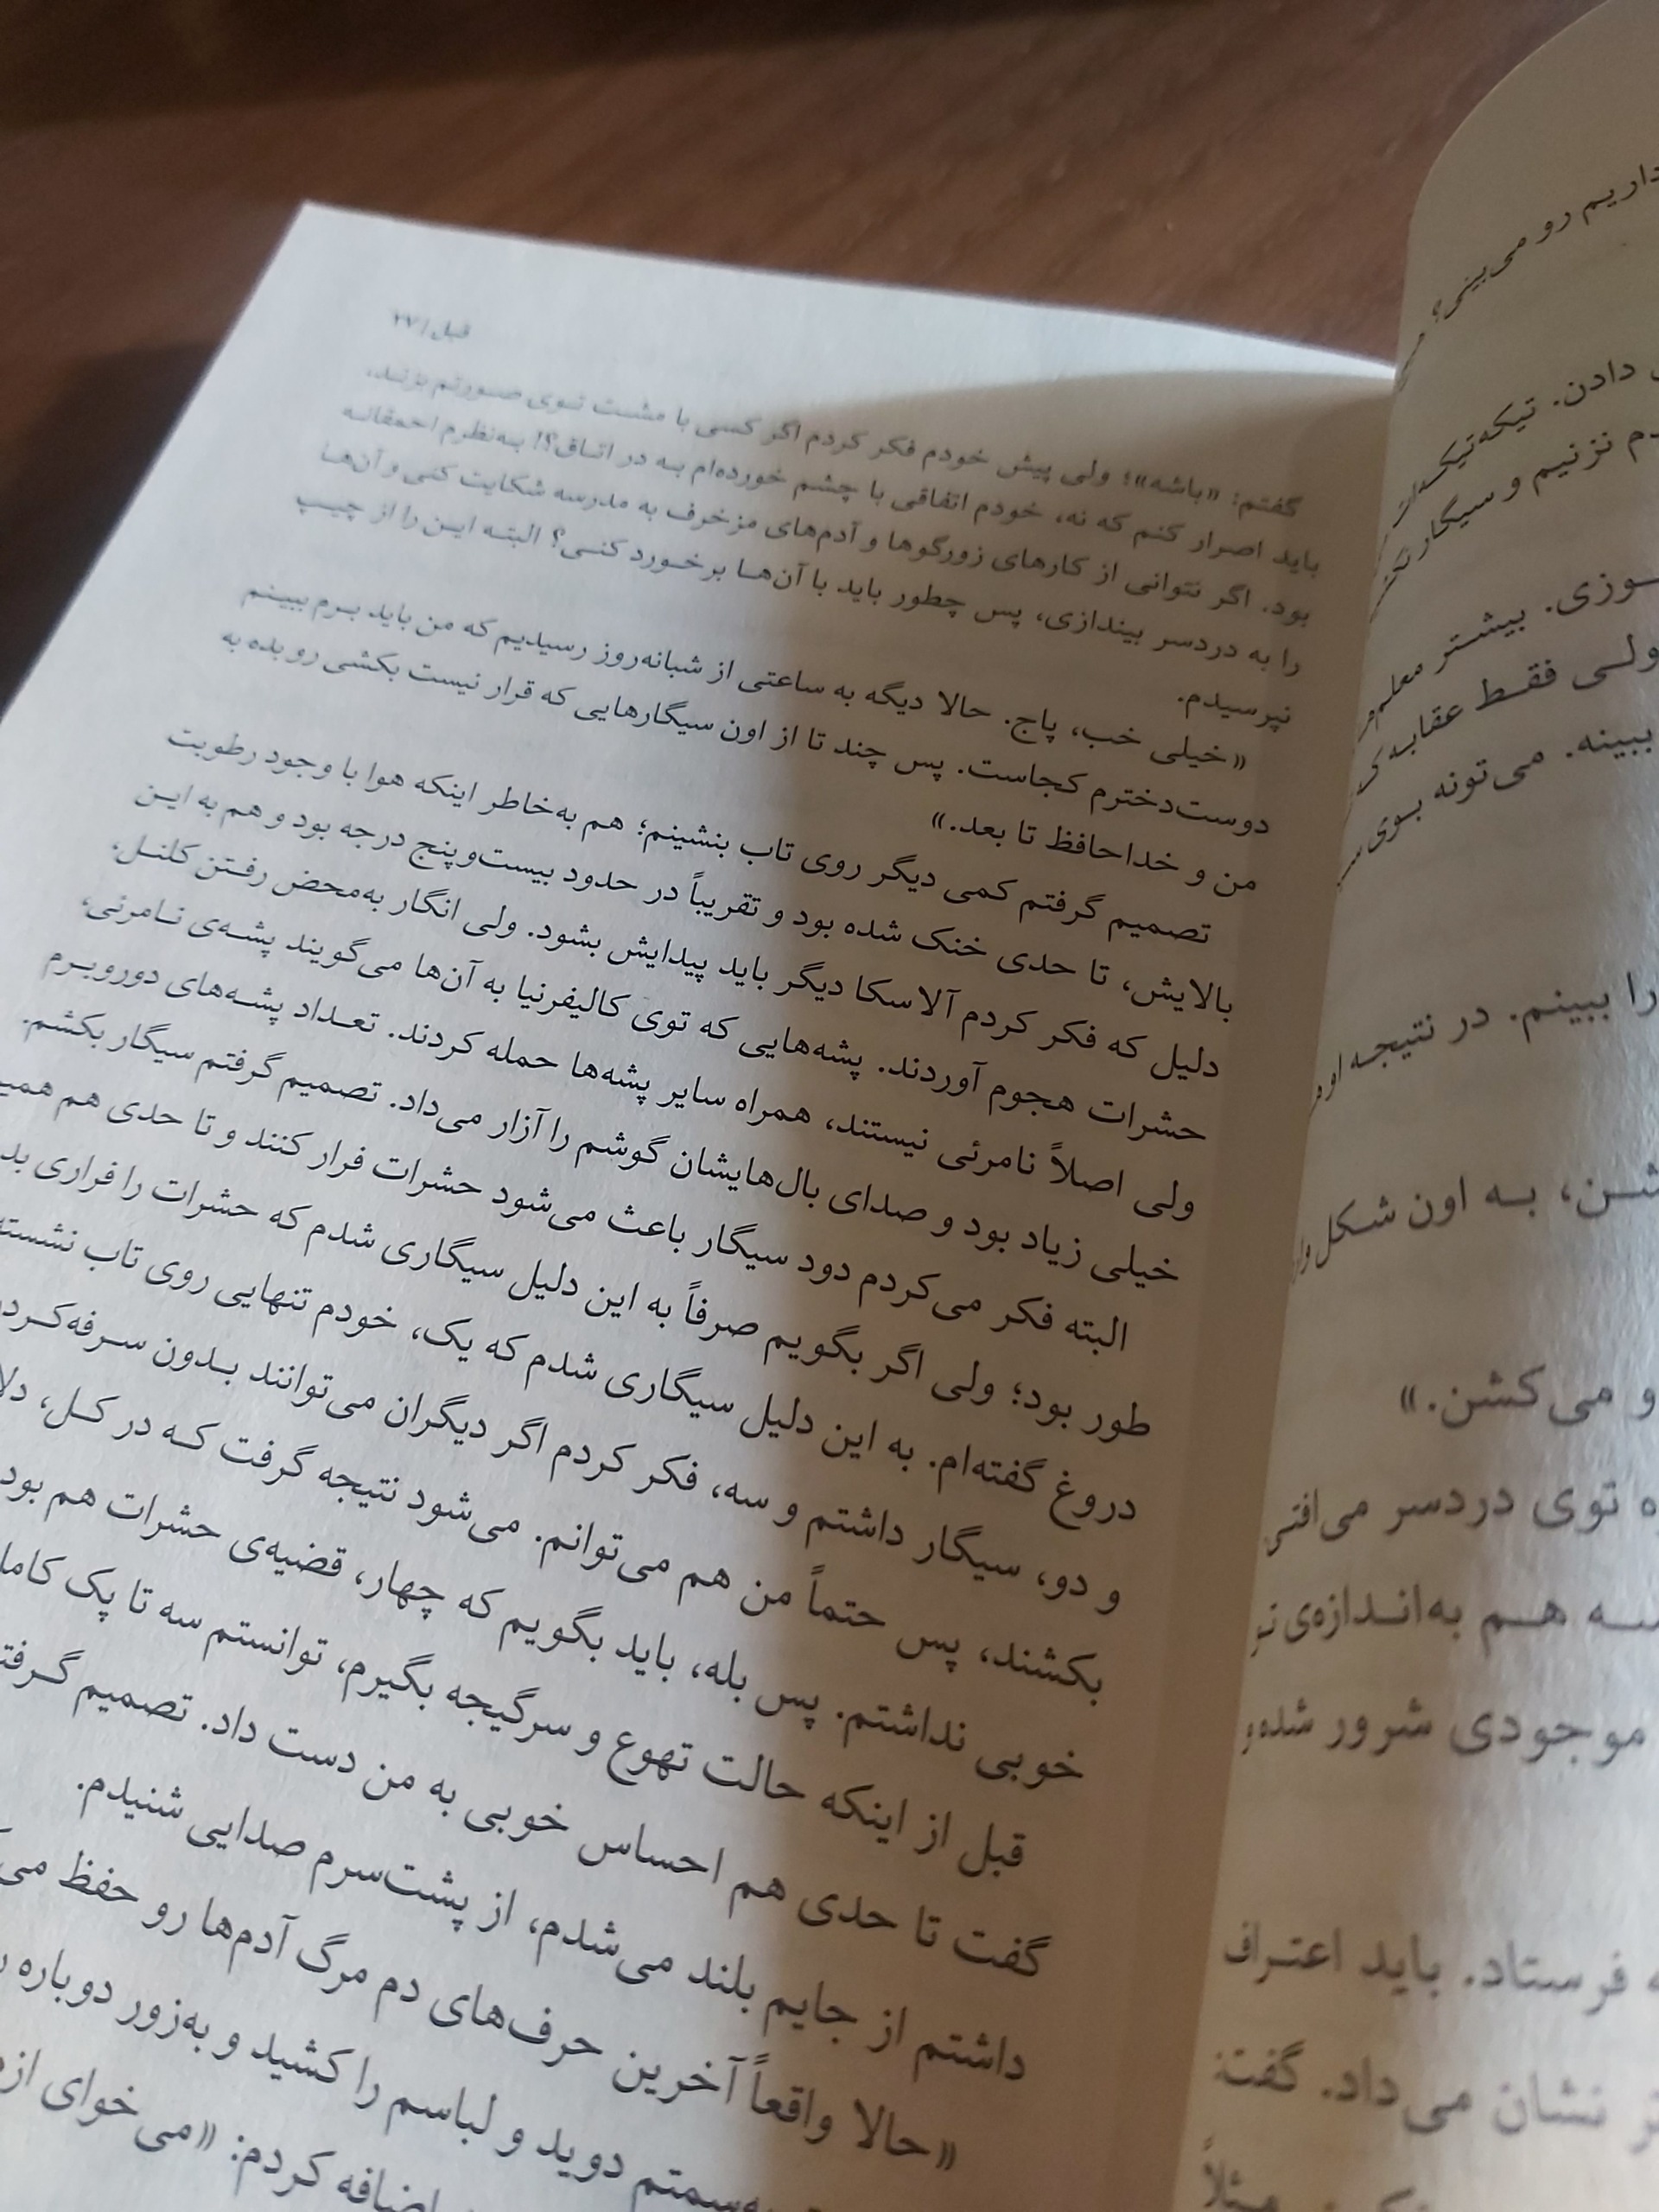 قبل / ۲۷
گفتم: «باشه»؛ ولی پیش خودم فکر کردم اگر کسی با مشت توی صورتم بزند،
باید اصرار کنم که نه، خودم اتفاقی با چشم خورده‌ام به در اتاق؟! به‌نظرم احمقانه
بود. اگر نتوانی از کارهای زورگوها و آدم‌های مزخرف به مدرسه شکایت کنی و آن‌ها
را به دردسر بیندازی، پس چطور باید با آن‌ها برخورد کنی؟ البته این را از چیپ
نپرسیدم.
«خیلی خب، پاج. حالا دیگه به ساعتی از شبانه‌روز رسیدیم که من باید برم ببینم
دوست‌دخترم کجاست. پس چند تا از اون سیگارهایی که قرار نیست بکشی رو بده به
من و خداحافظ تا بعد.»
تصمیم گرفتم کمی دیگر روی تاب بنشینم؛ هم به‌خاطر اینکه هوا با وجود رطوبت
بالایش، تا حدی خنک شده بود و تقریباً در حدود بیست‌وپنج درجه بود و هم به این
دلیل که فکر کردم آلاسکا دیگر باید پیدایش بشود. ولی انگار به‌محض رفتن کلنل،
حشرات هجوم آوردند. پشه‌هایی که توی کالیفرنیا به آن‌ها می‌گویند پشه‌ی نامرئی،
ولی اصلاً نامرئی نیستند، همراه سایر پشه‌ها حمله کردند. تعداد پشه‌های دوروبرم
خیلی زیاد بود و صدای بال‌هایشان گوشم را آزار می‌داد. تصمیم گرفتم سیگار بکشم.
البته فکر می‌کردم دود سیگار باعث می‌شود حشرات فرار کنند و تا حدی هم
طور بود؛ ولی اگر بگویم صرفاً به این دلیل سیگاری شدم که حشرات را فراری
دروغ گفته‌ام. به این دلیل سیگاری شدم که یک، خودم تنهایی روی تاب نشسته
و دو، سیگار داشتم و سه، فکر کردم اگر دیگران می‌توانند بدون
بکشند، پس حتماً من هم می‌توانم. می‌شود نتیجه گرفت که در کل،
خوبی نداشتم. پس بله، باید بگویم که چهار، قضیه‌ی حشرات هم بود
قبل از اینکه حالت تهوع و سرگیجه بگیرم، توانستم سه تا پک
گفت تا حدی هم احساس خوبی به من دست داد. تصمیم
داشتم از جایم بلند می‌شدم، از پشت‌سرم صدایی شنیدم.
«حالا واقعاً آخرین حرف‌های دم مرگ آدم‌ها رو حفظ
دوید و لباسم را کشید و به‌زور دوباره
کردم: «می‌خوای
داریم رو می‌بینی؟
دادن.
نزنیم و
بیشتر
ولی فقط
ببینه. می‌تونه بوی
را ببینم. در نتیجه
به اون شکل
و می‌کشن.»
توی دردسر
هم به‌اندازه‌ی
موجودی شرور
فرستاد. باید اعتراف
نشان می‌داد.
مثلاً